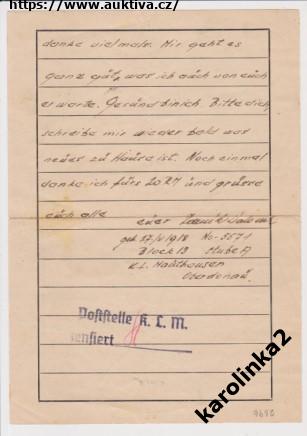 https://www.auktiva.cz/
danke vielmals. Mir geht es
ganz gut, was ich auch von euch
erwarte. Gesund bin ich. Bitte dich,
schreibe mir weder bald was
neues zu Hause ist. Noch einmal
danke ich fürs 20 RM und grüsse
euch alle
euer
geb. 1918 No-
Block 13 Stube A
K.L. Mauthausen
Oberdonau.
Poststelle K. L. M.
ensiert
karolinka2